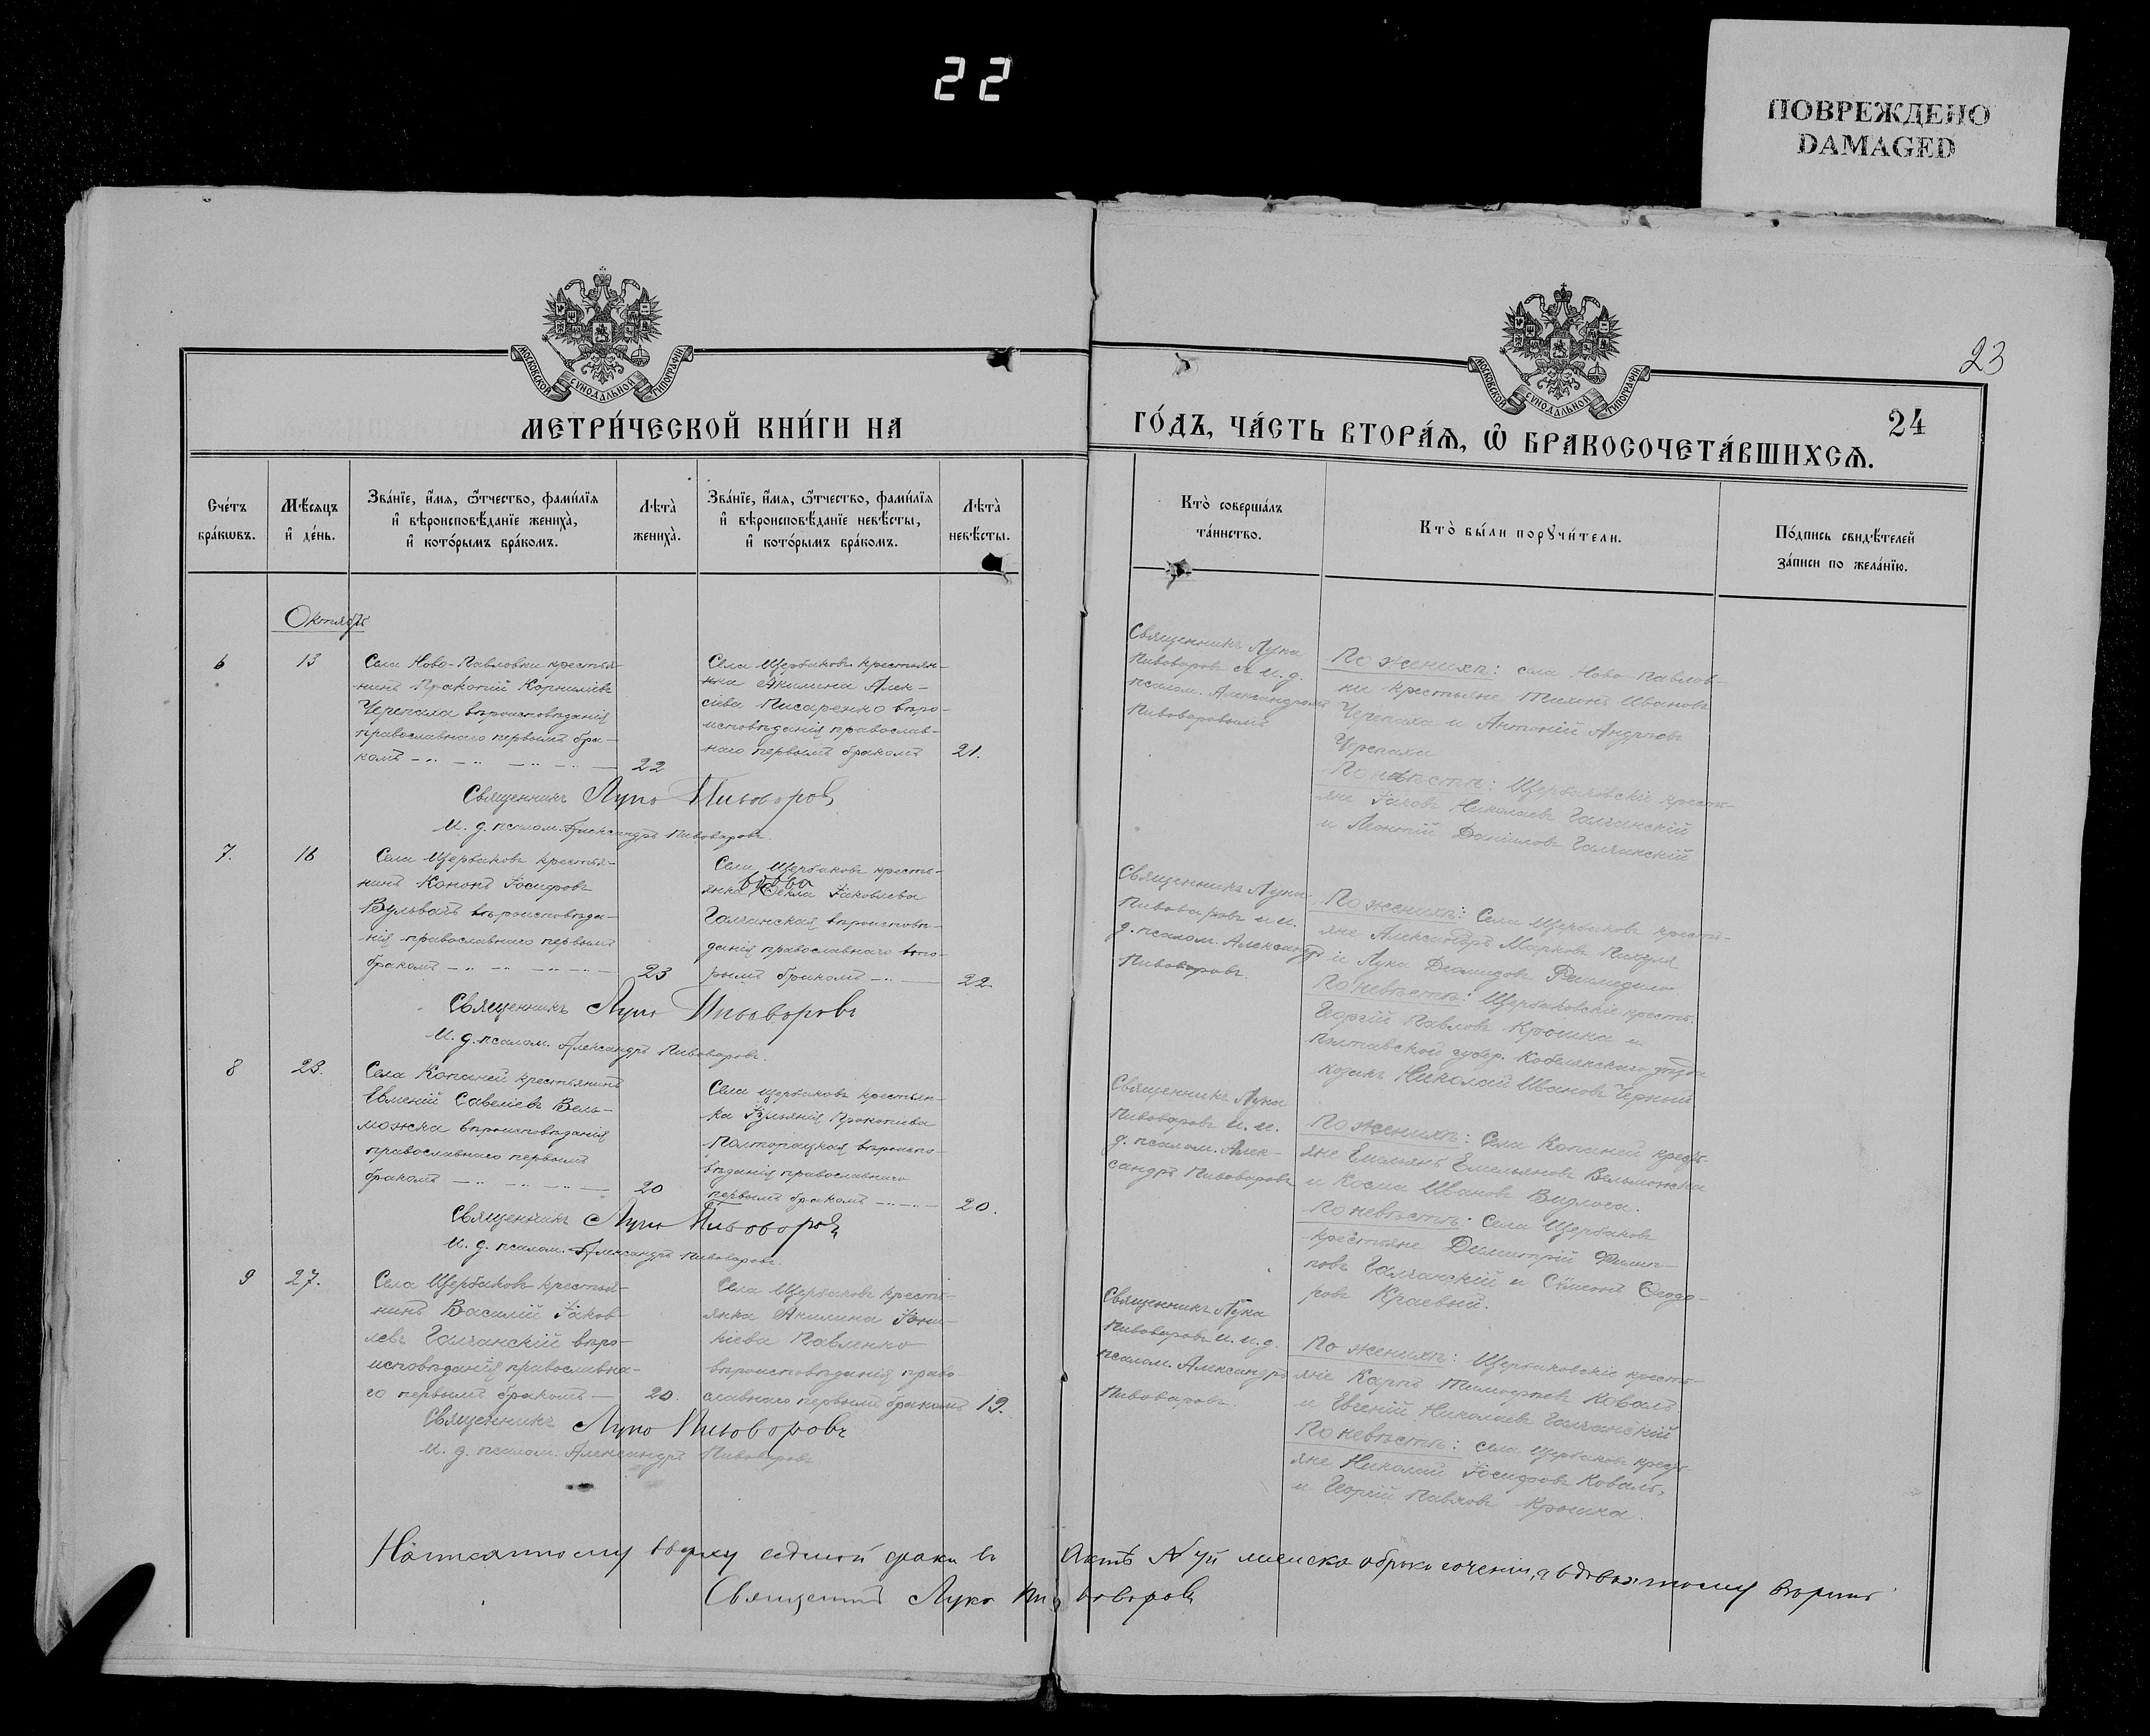 22
ПОВРЕЖДЕНО
DAMAGED
МОСКОВСКОЙ СУНОДАЛЬНОЙ ТИПОГРАФІИ
МОСКОВСКОЙ СУНОДАЛЬНОЙ ТИПОГРАФІИ
23
24
МЕТРИ́ЧЕСКОЙ КНИ́ГИ НА
ГО́ДЪ, ЧА́СТЬ ВТОРА́Ѧ, Ѽ БРАКОСОЧЕТА́ВШИХСѦ.
Сче́тъ
бра́кѡвъ.
Мѣ́сѧцъ
и҆ де́нь.
Зва́нїе, и҆́мѧ, ѻ҆́тчество, фами́лїѧ
и҆ вѣроисповѣ́данїе жениха̀,
и҆ кото́рымъ бра́комъ.
Лѣта̀
жениха̀.
Зва́нїе, и҆́мѧ, ѻ҆́тчество, фами́лїѧ
и҆ вѣроисповѣ́данїе невѣ́сты,
и҆ кото́рымъ бра́комъ.
Лѣта̀
невѣ́сты.
Кто̀ соверша́лъ
та́инство.
Кто̀ бы́ли порꙋчи́тели.
По́дпись свидѣ́телей
за́писи по жела́нїю.
Октябрь
6
13
Села Ново-Павловки крестья-
нинъ Прокопій Корниліевъ
Черепаха вѣроисповѣданія
православнаго первымъ бра-
комъ
22
Села Щербаковъ крестьян-
ка Акилина Алек-
сіева Писаренко вѣро-
исповѣданія православ-
наго первымъ бракомъ
21.
Священникъ Лука
Пивоваровъ и и. д.
псалом. Александромъ
Пивоваровымъ
По женихѣ: села Ново-Павлов-
ки крестьяне Тихонъ Ивановъ
Черепаха и Антоній Андреевъ
Черепаха
По невѣстѣ: Щербаковскіе кресть-
яне Іаковъ Николаевъ Галчанскій
и Леонтій Даніиловъ Галчанскій
Священникъ Лука Пивоваровъ
И. д. псалом. Александръ Пивоваровъ.
7.
16
Села Щербаковъ крестья-
нинъ Кононъ Іосифовъ
вѣроисповѣда-
нія православнаго первымъ
бракомъ
23
Села Щербаковъ кресть-
вдова
янка Ѳекла Іаковлева
Галчанская вѣроисповѣ-
данія православнаго вто-
рымъ бракомъ
22
Священникъ Лука
Пивоваровъ и и.
д. псалом. Александръ
Пивоваровъ.
По женихѣ: Села Щербаковъ кресть-
яне Александръ Марковъ
и Лука Діомидовъ
По невѣстѣ: Щербаковскіе кресть.
Георгій Павловъ Крошка и
Полтавской губер. Кобелякскаго уѣзда
козакъ Николай Ивановъ Черный
Священникъ Лука Пивоваровъ
И. д. псалом. Александръ Пивоваровъ.
8
23.
Села Копаней крестьянинъ
Евменій Савеліевъ Вель-
можка вѣроисповѣданія
православнаго первымъ
бракомъ
20
Села Щербаковъ крестьян-
ка Іуліанія Прокопіева
Полторацкая вѣроиспо-
вѣданія православнаго
первымъ бракомъ
20.
Священникъ Лука
Пивоваровъ и. и.
д. псалом. Алек-
сандръ Пивоваровъ
По женихѣ: Села Копаней кресть-
яне Емельянъ Емельяновъ Вельможка
и Косма Ивановъ
По невѣстѣ: Села Щербаковъ
крестьяне Димитрій Филип-
повъ Галчанскій и Сѵмеонъ Ѳеодо-
ровъ Краевый.
Священникъ Лука Пивоваровъ
И. д. псалом. Александръ Пивоваровъ.
9
27.
Села Щербаковъ крестья-
нинъ Василій Іаков-
левъ Галчанскій вѣро-
исповѣданія православна-
го первымъ бракомъ
20.
Села Щербаковъ кресть-
янка Акилина Іоан-
кіева Павленко
вѣроисповѣданія право-
славнаго первымъ бракомъ
19.
Священникъ Лука
Пивоваровъ и. и. д.
псалом. Александръ
Пивоваровъ.
По женихѣ: Щербаковскіе кресть-
яне Карпъ Тимоѳеевъ Коваль
и Евгеній Николаевъ Галчанскій
По невѣстѣ: села Щербаковъ кресть-
яне Николай Іосифовъ Коваль,
и Георгій Павловъ Крошка.
Священникъ Лука Пивоваровъ
И. д. псалом. Александръ Пивоваровъ
Написанному вверху
Священникъ Лука Пивоваровъ